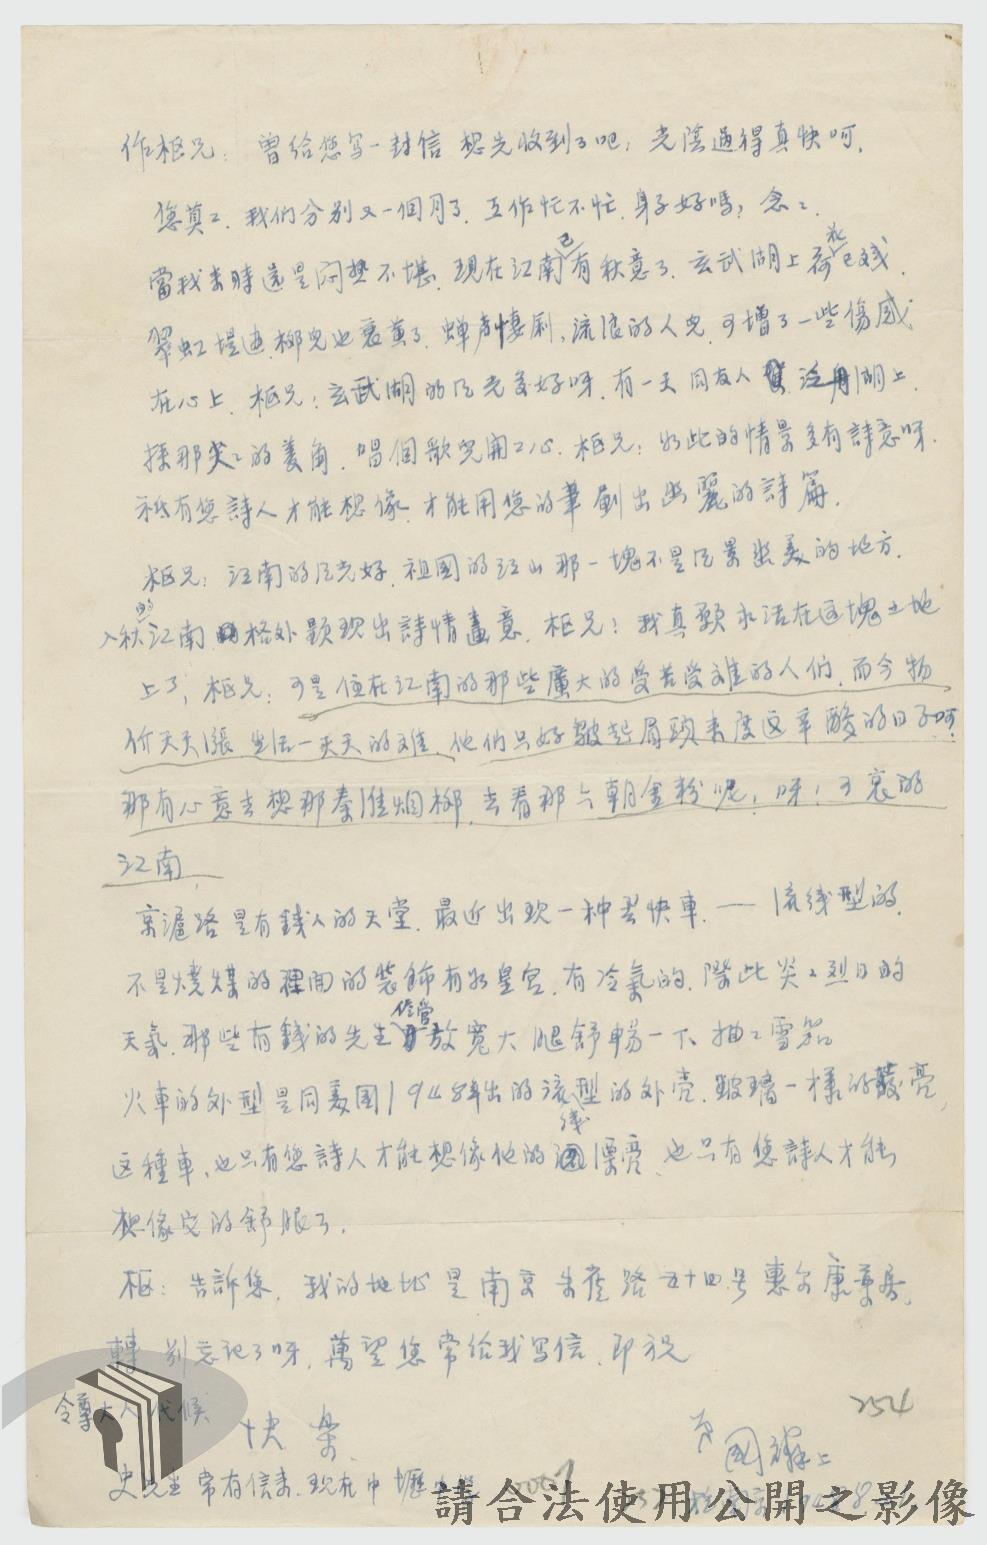 作樞兄：曾給您写一封信 想先收到了吧，光陰過得真快呵，
您莫々．我们分別又一個月了．工作忙不忙．身子好嗎？念々．
當我来時還是闷热不堪．現在江南已有秋意了．玄武湖上荷花已残，
翠虹堤邊．柳兒也衰黄了．蝉声悽厠，流浪的人兒．可增了一些傷感
在心上．樞兄：玄武湖的风光多好呀．有一天同友人 泛舟湖上．
採那尖々的菱角．唱個歌兒開々心．樞兄：如此的情景多有詩意呀．
祇有您詩人才能想像．才能用您的筆劃出幽麗的詩篇．
樞兄：江南的风光好．祖國的江山那一塊不是风景幽美的地方．
入秋的江南 格外顯现出詩情畫意．樞兄：我真願永活在这塊土地
上了，樞兄：可是住在江南的那些廣大的受苦受难的人们，而今物
价天天漲．生活一天天的难．他們只好皺起眉頭来度这辛酸的日子呵？
那有心意去想那秦淮烟柳．去看那六朝金粉呢，呀！可哀的
江南，
京滬路是有錢人的天堂．最近出现一种新快車．— 流线型的，
不是燒煤的裡面的裝飾有如皇宮．有冷氣的．際此炎々烈日的
天氣．那些有錢的先生 儘管放寬大腿舒暢一下．抽々雪笳
火車的外型是同美国1948年出的流线型的外壳．玻璃一樣的發亮，
这種車、也只有您詩人才能想像他的漂亮、也只有您詩人才能
想像它的舒服了．
樞：告訴您．我的地址是南京朱雀路五十四号惠尔康葯房，
轉 別忘记了呀，萬望您常给我写信．即祝
快樂
令尊大人代候
弟國 上
254
史先生常有信来．现在中壢
請合法使用公開之影像